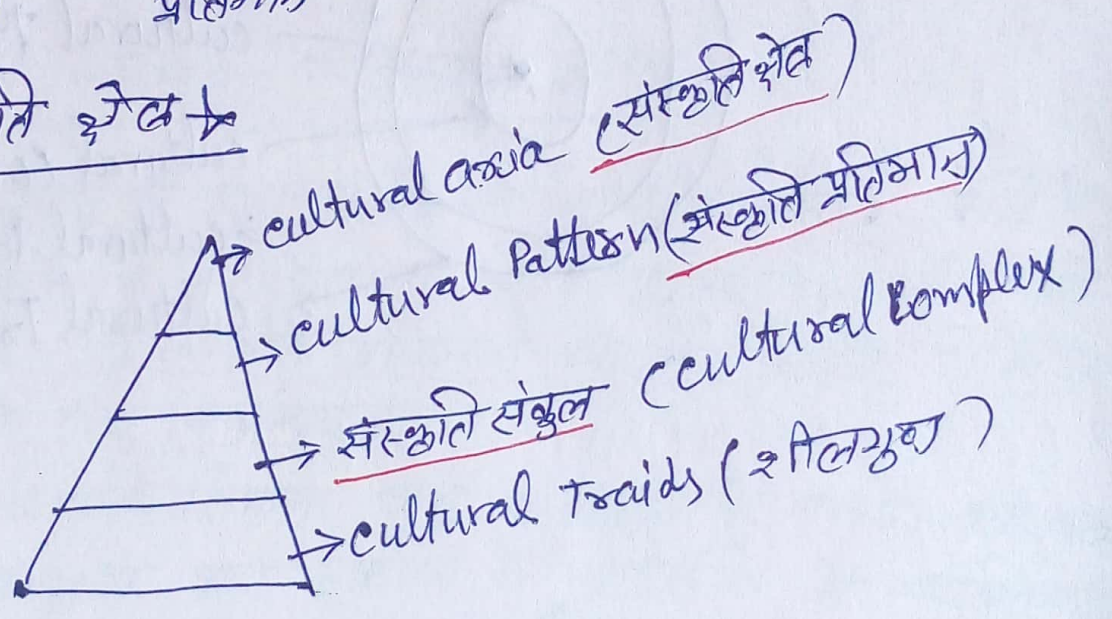 ति क्षेत्र →
cultural aria (संस्कृति क्षेत्र)
cultural Pattern (संस्कृति प्रतिमान)
संस्कृति संकुल (cultural complex)
cultural Traids (शीलगुण)